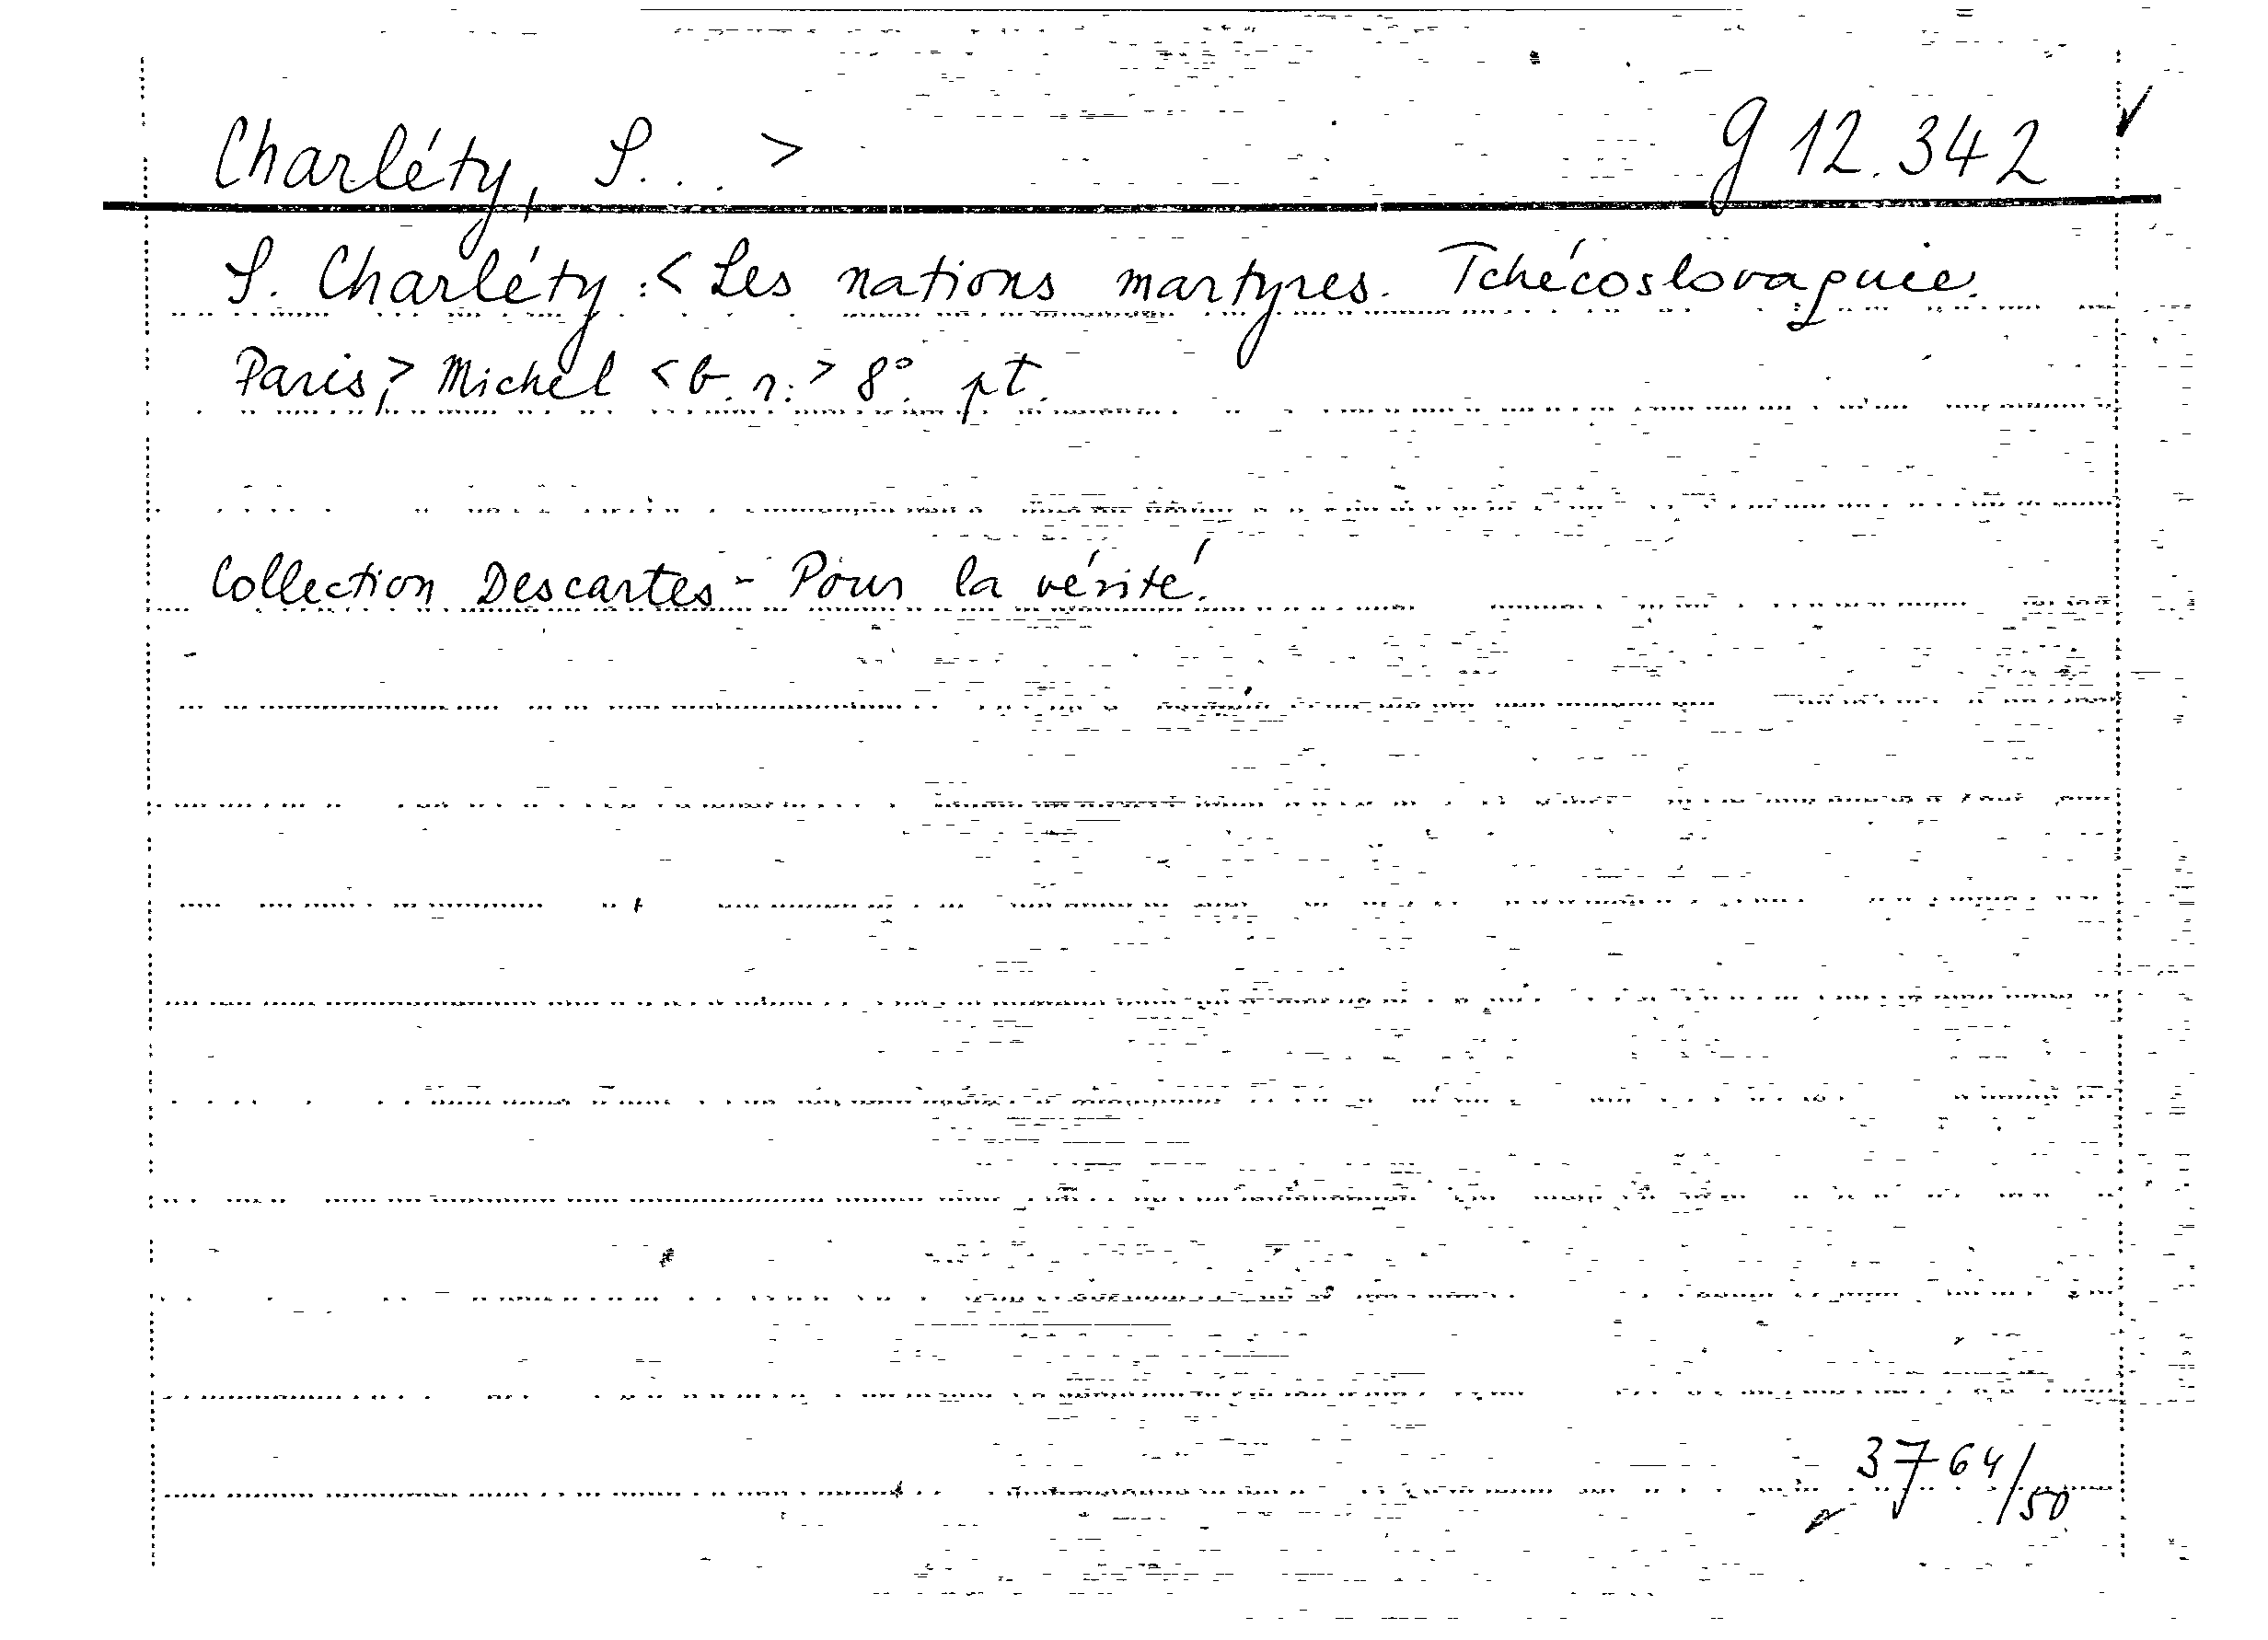 Charléty, S... > g 12.342
S. Charléty: < Les nations martyres. Tchécoslovaquie.
Paris, > Michel < b. r. > 8° pt.
Collection Descartes - Pour la vérité.
3764/50